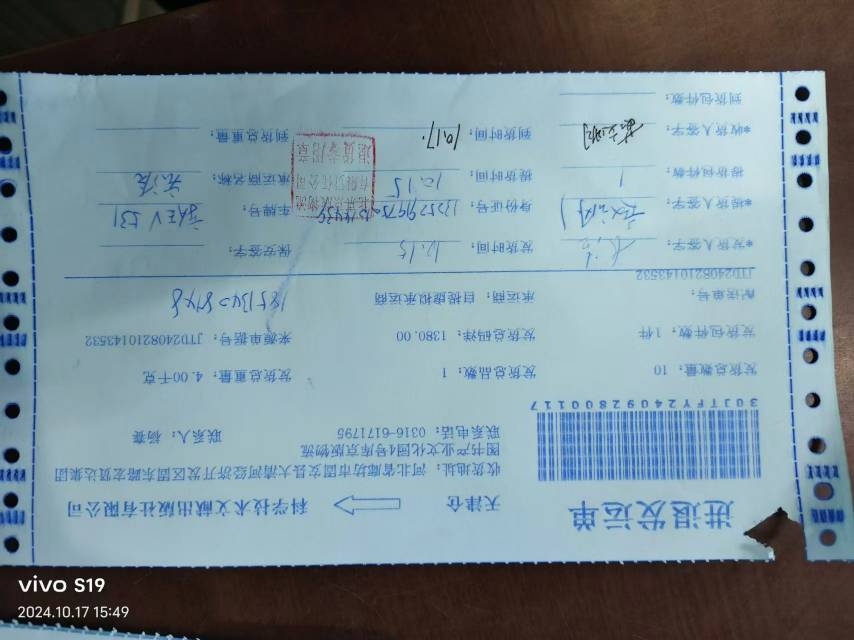 进退发运单
天津仓 科学技术文献出版社有限公司
30JTFY24092800117
收货地址：河北省廊坊市固安县大清河经济开发区固东路宏贺达集团
图书产业文化园4号库京版物流
联系电话：0316-6171795 联系人：杨赛
发货总数量：10 发货总品数：1 发货总重量：4.00千克
发货包件数：1件 发货总码洋：1380.00 来源单据号：JTD2408210143532
配送单号： 承运商：自提虚拟承运商 18513408748
JTD2408210143532
*发货人签字： 发货时间：10.15 保安签字：
*提货人签字： 身份证号： 车牌号：
提货件数：1 提货时间：10.15 承运商名称：
*收货人签字： 到货时间：10.17. 到货总重量：
到货包件数：
北京京版物流
有限责任公司
退货专用章
vivo S19
2024.10.17 15:49